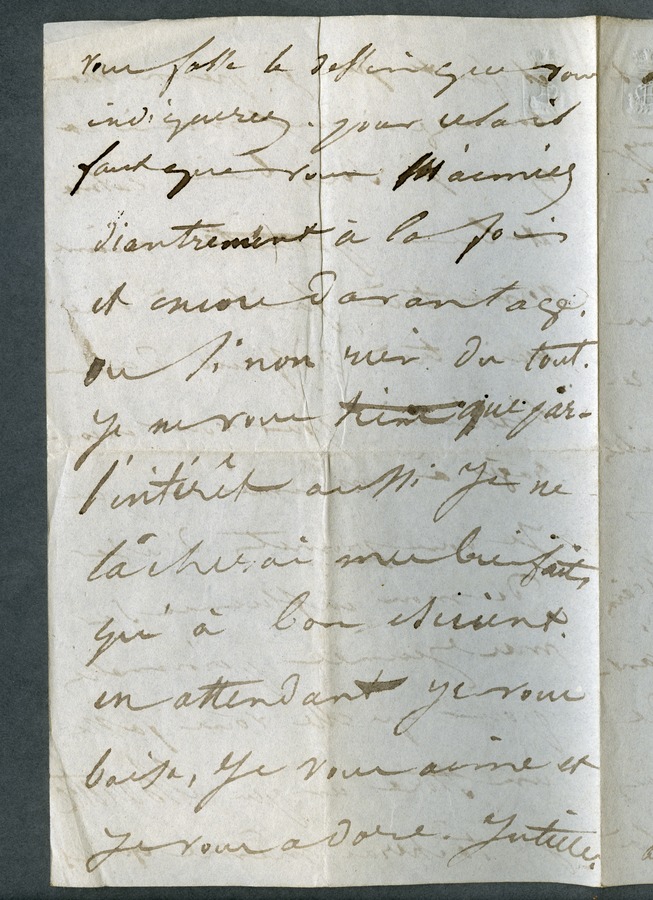 vous fasse le dessin que vous
indiquerez. pour cela il
faut que vous m'aimiez
d'autrement à la fois
et encore davantage.
ou sinon rien du tout.
Je ne vous tiens que par
l'intérêt aussi Je ne
lâcherai mes bienfaits
qu'à bon escient.
en attendant Je vous
baise, Je vous aime et
Je vous adore. Juliette.